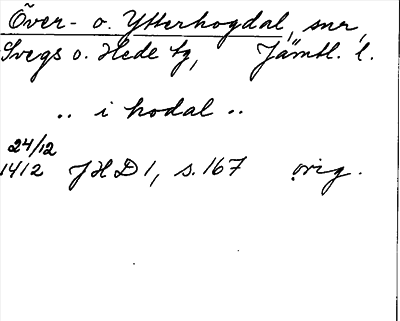 Över- o. Ytterhogdal, snr,
Svegs o. Hede tg, Jämtl. l.
.. i hodal ..
24/12
1412 JHD 1, s. 167 orig.